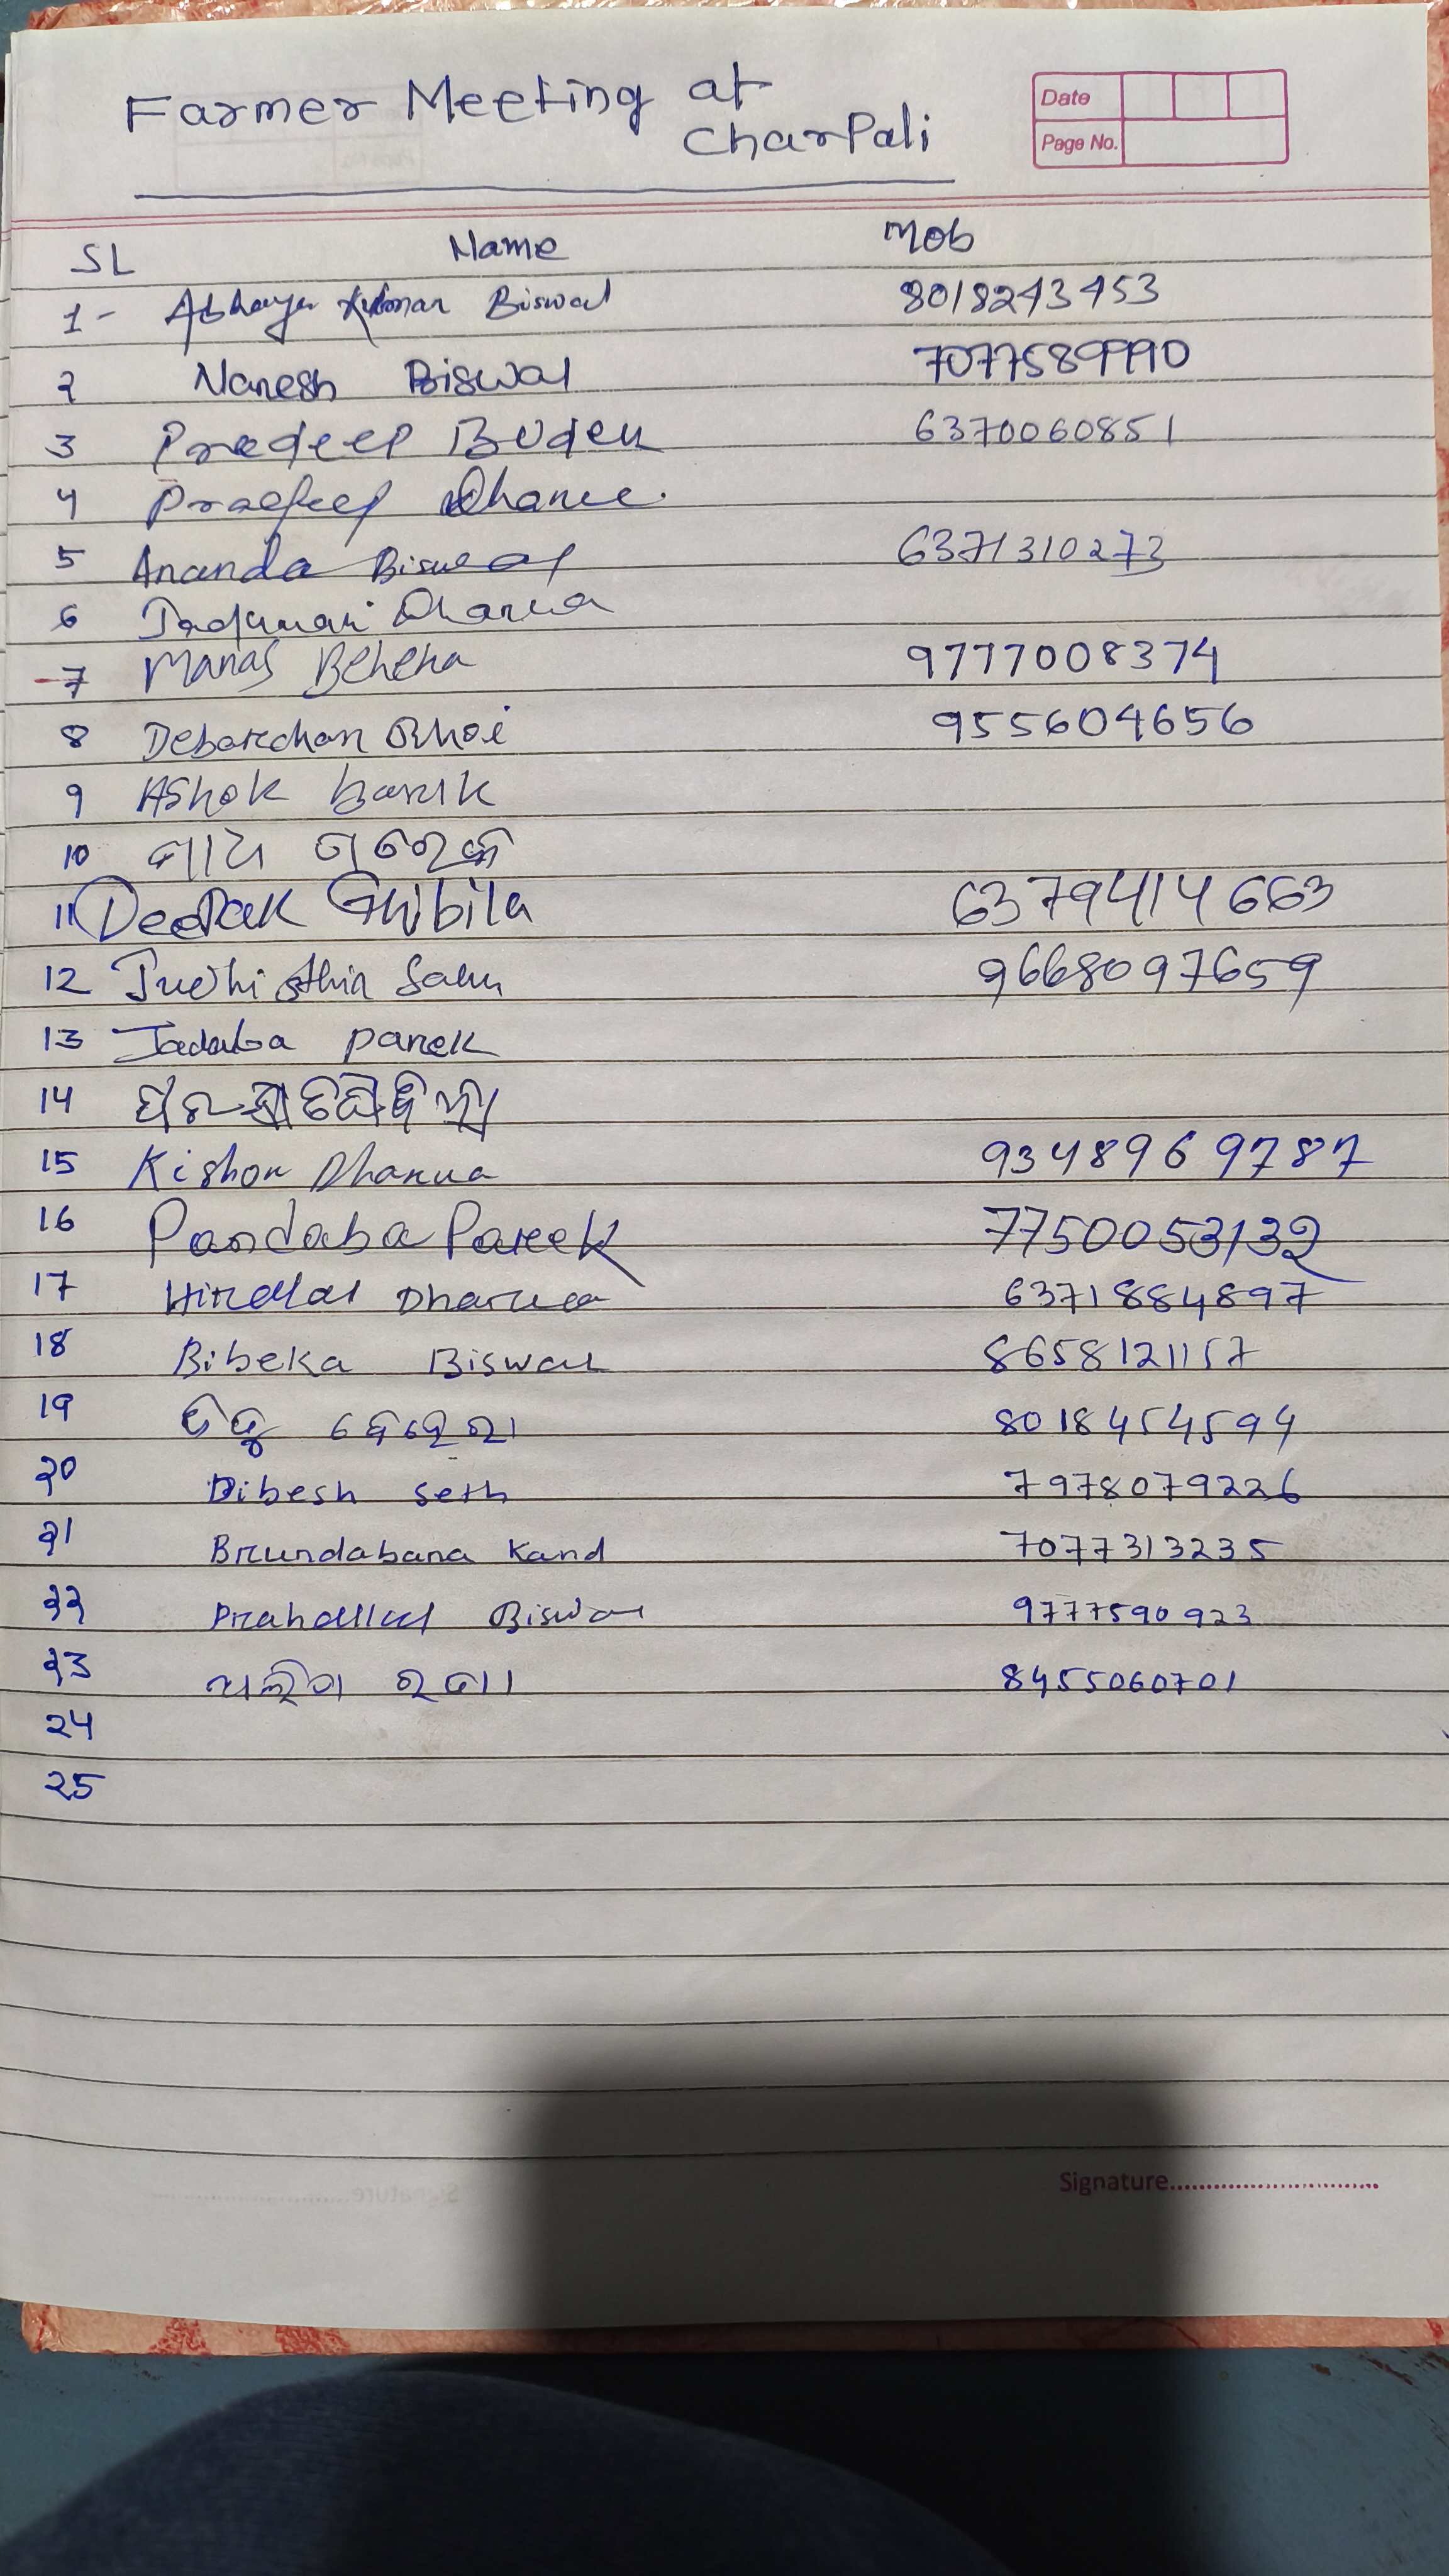 Farmer Meeting at
CharPali
Date
Page No.
SL Name Mob
1- Abhaya Kumar Biswal 8018243453
2 Naresh Biswal 7077589990
3 Pradeep Budek 6370060851
4 Pradeep
5 Ananda Biswal 6371310273
6 Dharua
7 Manas Behera 9777008374
8 Debarchan Bhoi 955604656
9 Ashok barik
10
11 Deepak Gribila 6379414663
12 Judhisthir Sahu 9668097659
13 Jadaba parek
14
15 Kishor Dharua 9348969787
16 Pandaba Pareek 7750053132
17 Hiralal Dharua 6371884897
18 Bibeka Biswal 8658121157
19 ବେହେରା 8018454594
20 Dibesh Seth 7978079226
21 Brundabana Kand 7077313235
22 Prahallad Biswal 9777590923
23 8455060701
24
25
Signature